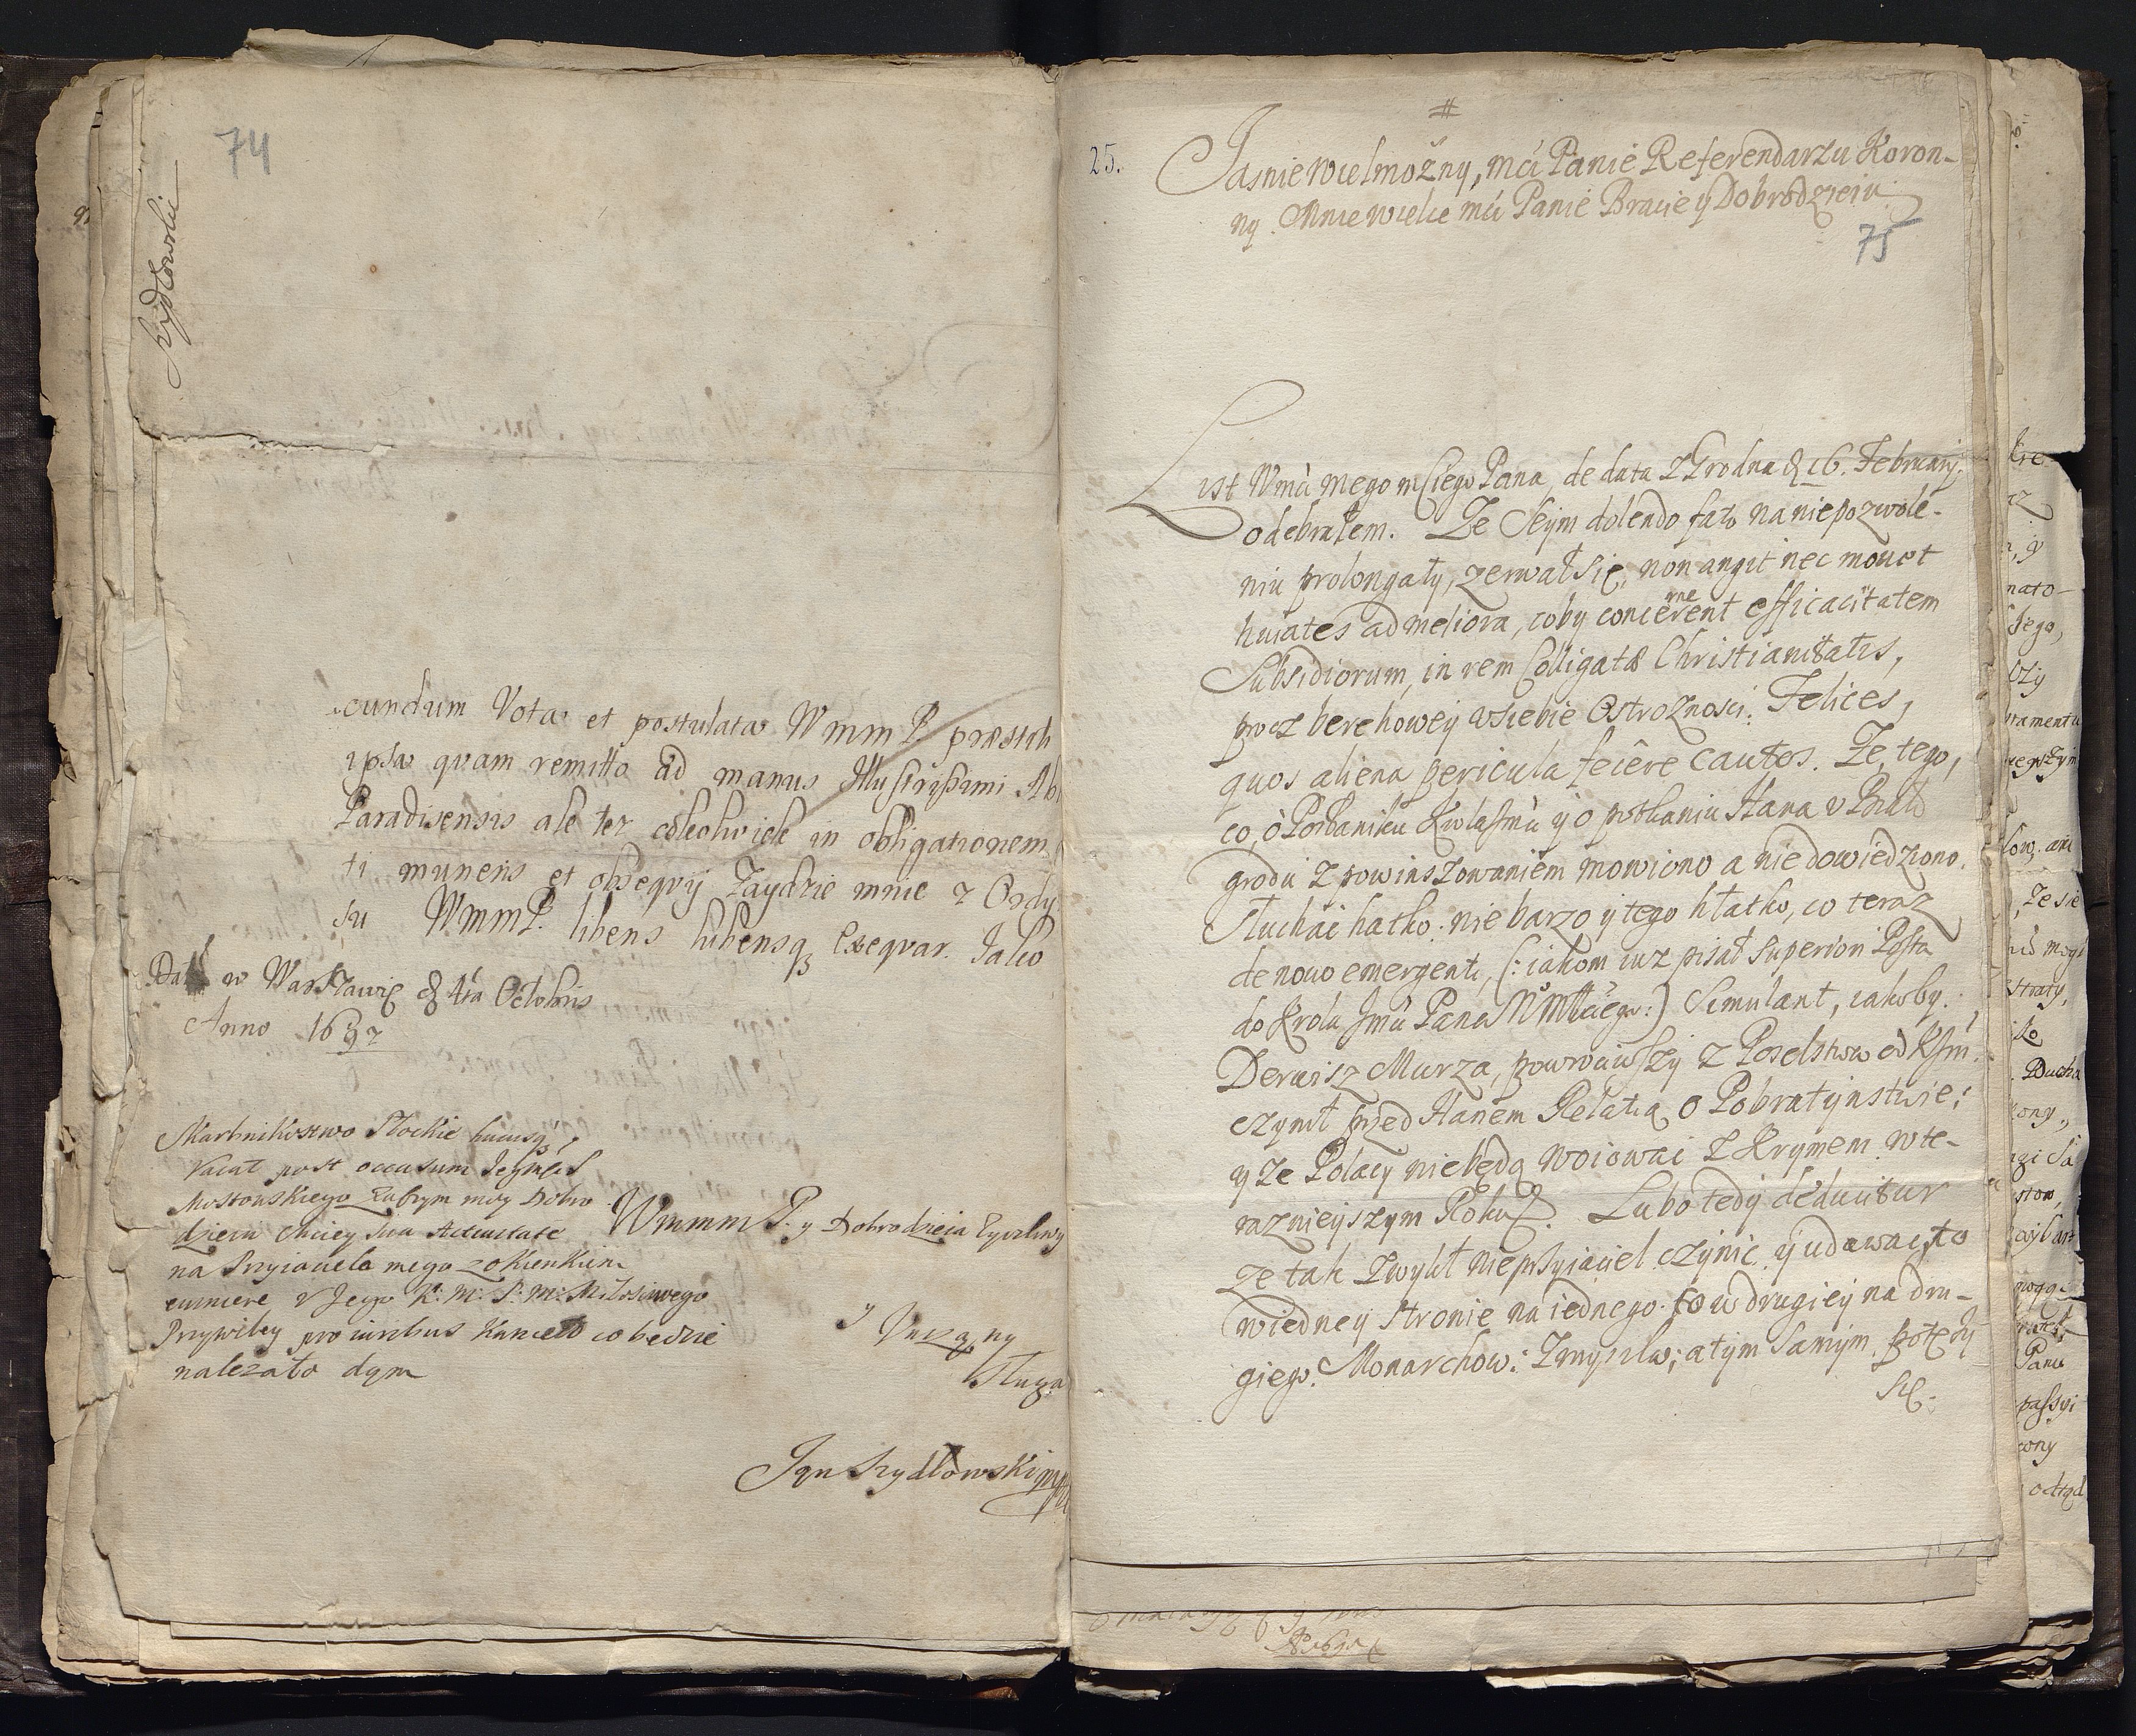 74
Szydłowski
cundum Vota et postulata WmmP præstit
ipsa quam remitto ad manus Illustrissimi Ab
Paradisensis ale tez cokolwiek in obligationem
ti muneris et obsequij Zaydzie mnie z Ordy
su WmmP. libens lubensq₃ exequar. Jako
Dat w Warszawie d 4ta Octobris
Anno 1687
Skarbnikostwo Płockie hucusq
Vacat post occasum Jegmści
Mostowskiego
dzieiu chciey sua Activitate
na Przyiaciela mego z okienkiem
eminere v Jego K: M: P: M: Miłosciwego
Przywiley pro iuribus Kancel co będzie
nalezało dąm
WmmmP. y Dobrodzieia Zyczliwy
y Unizony
Sługa
Jan Szydłowski mp
25.
#
Jasnie Wielmozny, mći Panie Referendarzu Koron-
ny. Mnie Wielce mći Panie Bracie y Dobrodzieiu
75
List Wmći mego mściego Pana, de data z Grodna d 16. Februarij.
odebrałem. Ze Seym dolendo fato na niepozwole-
niu prolongaty, zerwał się, non angit nec mouet
huiates ad meliora, coby concernerent efficacitatem
Subsidiorum, in rem Colligatæ Christianitatis,
procz berehowey v siebie Ostroznosci. Felices,
quos aliena pericula fecêre cautos. Ze, tego,
co, o Posłaniku y o potkaniu Hana v Biało
grodu z powinszowaniem mowiono a nie dowiedziono.
Słuchać hatko. nie barzo y tego hłatko, co teraz
de nouo emergenti, (: iakom iuz pisał superiori Posta
do Krola Jmći Pana N Mściego:) Simulant, iakoby
Derwisz Murza, powrociwszy z Poselstwa od Ksm
czynił przed Hanem Relatią o Pobratynstwie;
y ze Polacy nie będą woiować z Krymem w te-
raznieyszym Roku. Lubo tedy deducitur
ze tak zwykł nieprzyiaciel czynić y udawać, to
w iedney stronie na iednego. to w drugiey na dru-
giego. Monarchow: Zmysla; a tym samym potęzy
się: